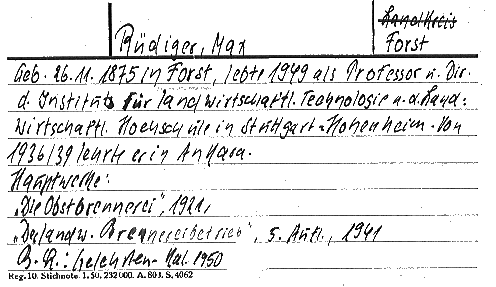 Rüdiger, Max
Landkreis
Forst
Geb. 26.11.1875 in Forst, lebte 1949 als Professor u. Dir.
d. Instituts für landwirtschaftl. Technologie a. d. Land-
wirtschaftl. Hochschule in Stuttgart-Hohenheim. Von
1936/39 lehrte er in Ankara.
Hauptwerke:
„Die Obstbrennerei", 1921,
„D. landw. Brennereibetrieb", 5. Aufl., 1941
B.R.: Gelehrten-Kal. 1950
Reg. 10. Stichnote. 1. 50. 232000. A. 803. S. 4062